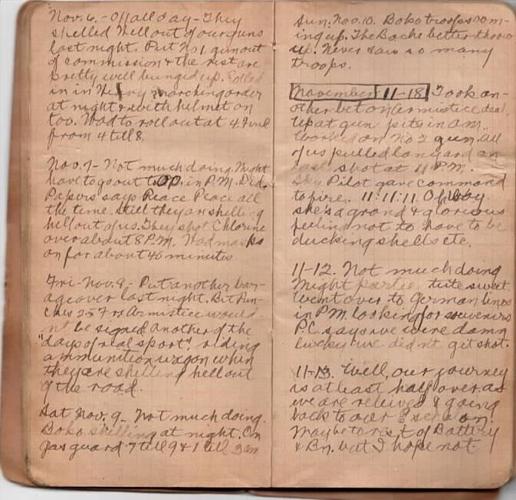 Nov. 6. - Off all day - They
shelled hell out of our guns
last night. Put No 1 gun out
of commission & the rest are
pretty well bunged up. Rolled
in in Heavy marching order
at night & with helmet on
too. Had to roll out at 4 &
from 4 till 8.
Nov. 7 - Not much doing. Might
have to go out to OP in P.M. Did.
Papers says Peace Peace all
the time. Still they are shelling
hell out of us. They shot Chlorine
over about 8 P.M. Had masks
on for about 45 minutes
Fri - Nov. 8. Put another bar-
age over last night. Bet
Armistice would
n't be signed. Another of the
"days of real sport", riding
ammunition wagon when
they are shelling hell out
of the road.
Sat Nov. 9. Not much doing.
Boko shelling at night. On
gas guard 7 till 9 & 1 till 3 am
Sun. Nov. 10. Boko troops com-
ing up. The Bochs better throw
up. Never saw so many
troops.
November 11-18. Took an-
other bet on Armistice deal
up at gun pits in A.M.
Worked on No 2 gun. All
of us pulled lanyard on
last shot at 11 P.M.
Sky Pilot gave command
to fire. 11:11:11 Oh Boy
she's a grand & glorious
feeling not to have to be
ducking shells etc.
11-12. Not much doing
Might partie tute sweet
Went over to German lines
in P.M. looking for souvenirs
P.C. says we were damn
luckey we didn't get shot.
11-13. Well, our journey
is at least half over as
we are relieved & going
back to
Maybe to rest of Battery
& Bn. but I hope not